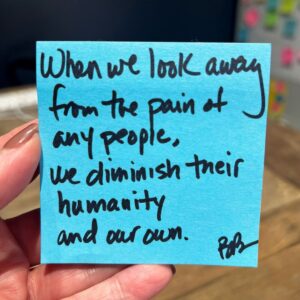 When we look away
from the pain of
any people,
we diminish their
humanity
and our own.
BB